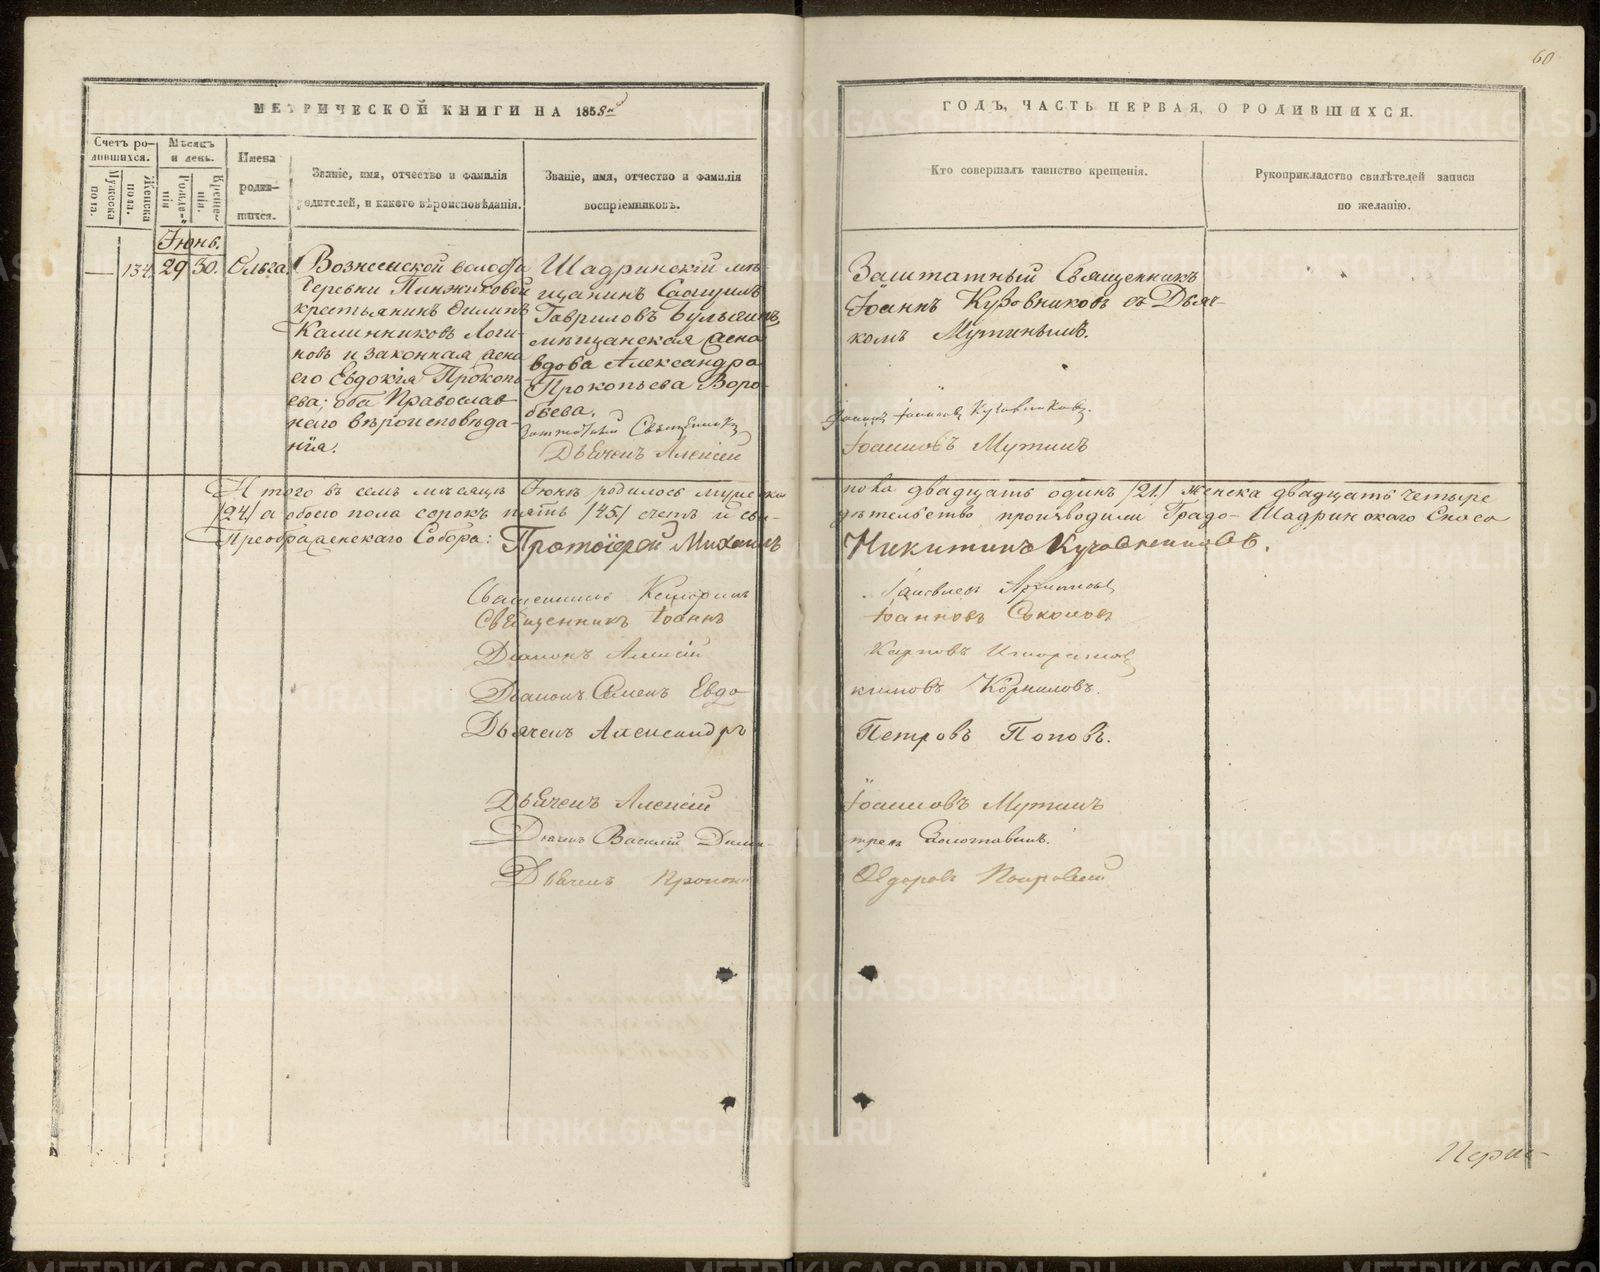 60
МЕТРИЧЕСКОЙ КНИГИ НА 1858й
ГОДЪ, ЧАСТЬ ПЕРВАЯ, О РОДИВШИХСЯ.
Счетъ ро-
дившихся.
Мужеска
пола.
Женска
пола.
Мѣсяцъ
и день.
Рожде-
нія
Креще-
нія.
Имена
родив-
шихся.
Званіе, имя, отчество и фамилія
родителей, и какого вѣроисповѣданія.
Званіе, имя, отчество и фамилія
воспріемниковъ.
Кто совершалъ таинство крещенія.
Рукоприкладство свидѣтелей записи
по желанію.
Іюнь.
134. 29 30. Ольга.
Вознесенской волости
деревни
крестьянинъ Филипъ
Калинниковъ Логи-
новъ и законная жена
его Евдокія Прокопь-
ева; оба Православ-
наго вѣроисповѣда-
нія.
Шадринскій мѣ-
щанинъ
Гавриловъ Булыгинъ,
мѣщанская жена
вдова Александра
Прокопьева Воро-
бьева.
Заштатный Священникъ
Дьячекъ Алексій
Заштатный Священникъ
Іоаннъ Кузовниковъ съ Дьяч-
комъ Мутинымъ.
Іоаннъ Іоанновъ Кузовниковъ.
Іоанновъ Мутинъ
Итого въ семъ мѣсяцѣ Іюнѣ родилось мужеска
пола двадцать одинъ /21/ женска двадцать четыре
/24/ а обоего пола сорокъ пять /45/ счетъ и сви-
дѣтельство производили Градо-Шадринскаго Спасо
Преображенскаго Собора: Протоіерей Михаилъ
Никитинъ Кузовниковъ.
Священникъ
Священникъ Іоаннъ
Іоанновъ Соколовъ
Діаконъ Алексій
Карповъ
Діаконъ Семенъ Евдо-
кимовъ Корниловъ.
Дьячекъ Александръ
Петровъ Поповъ.
Дьячекъ Алексій
Іоанновъ Мутинъ
Дьячекъ Василій Дими-
тріевъ
Дьячекъ
Ѳедоровъ